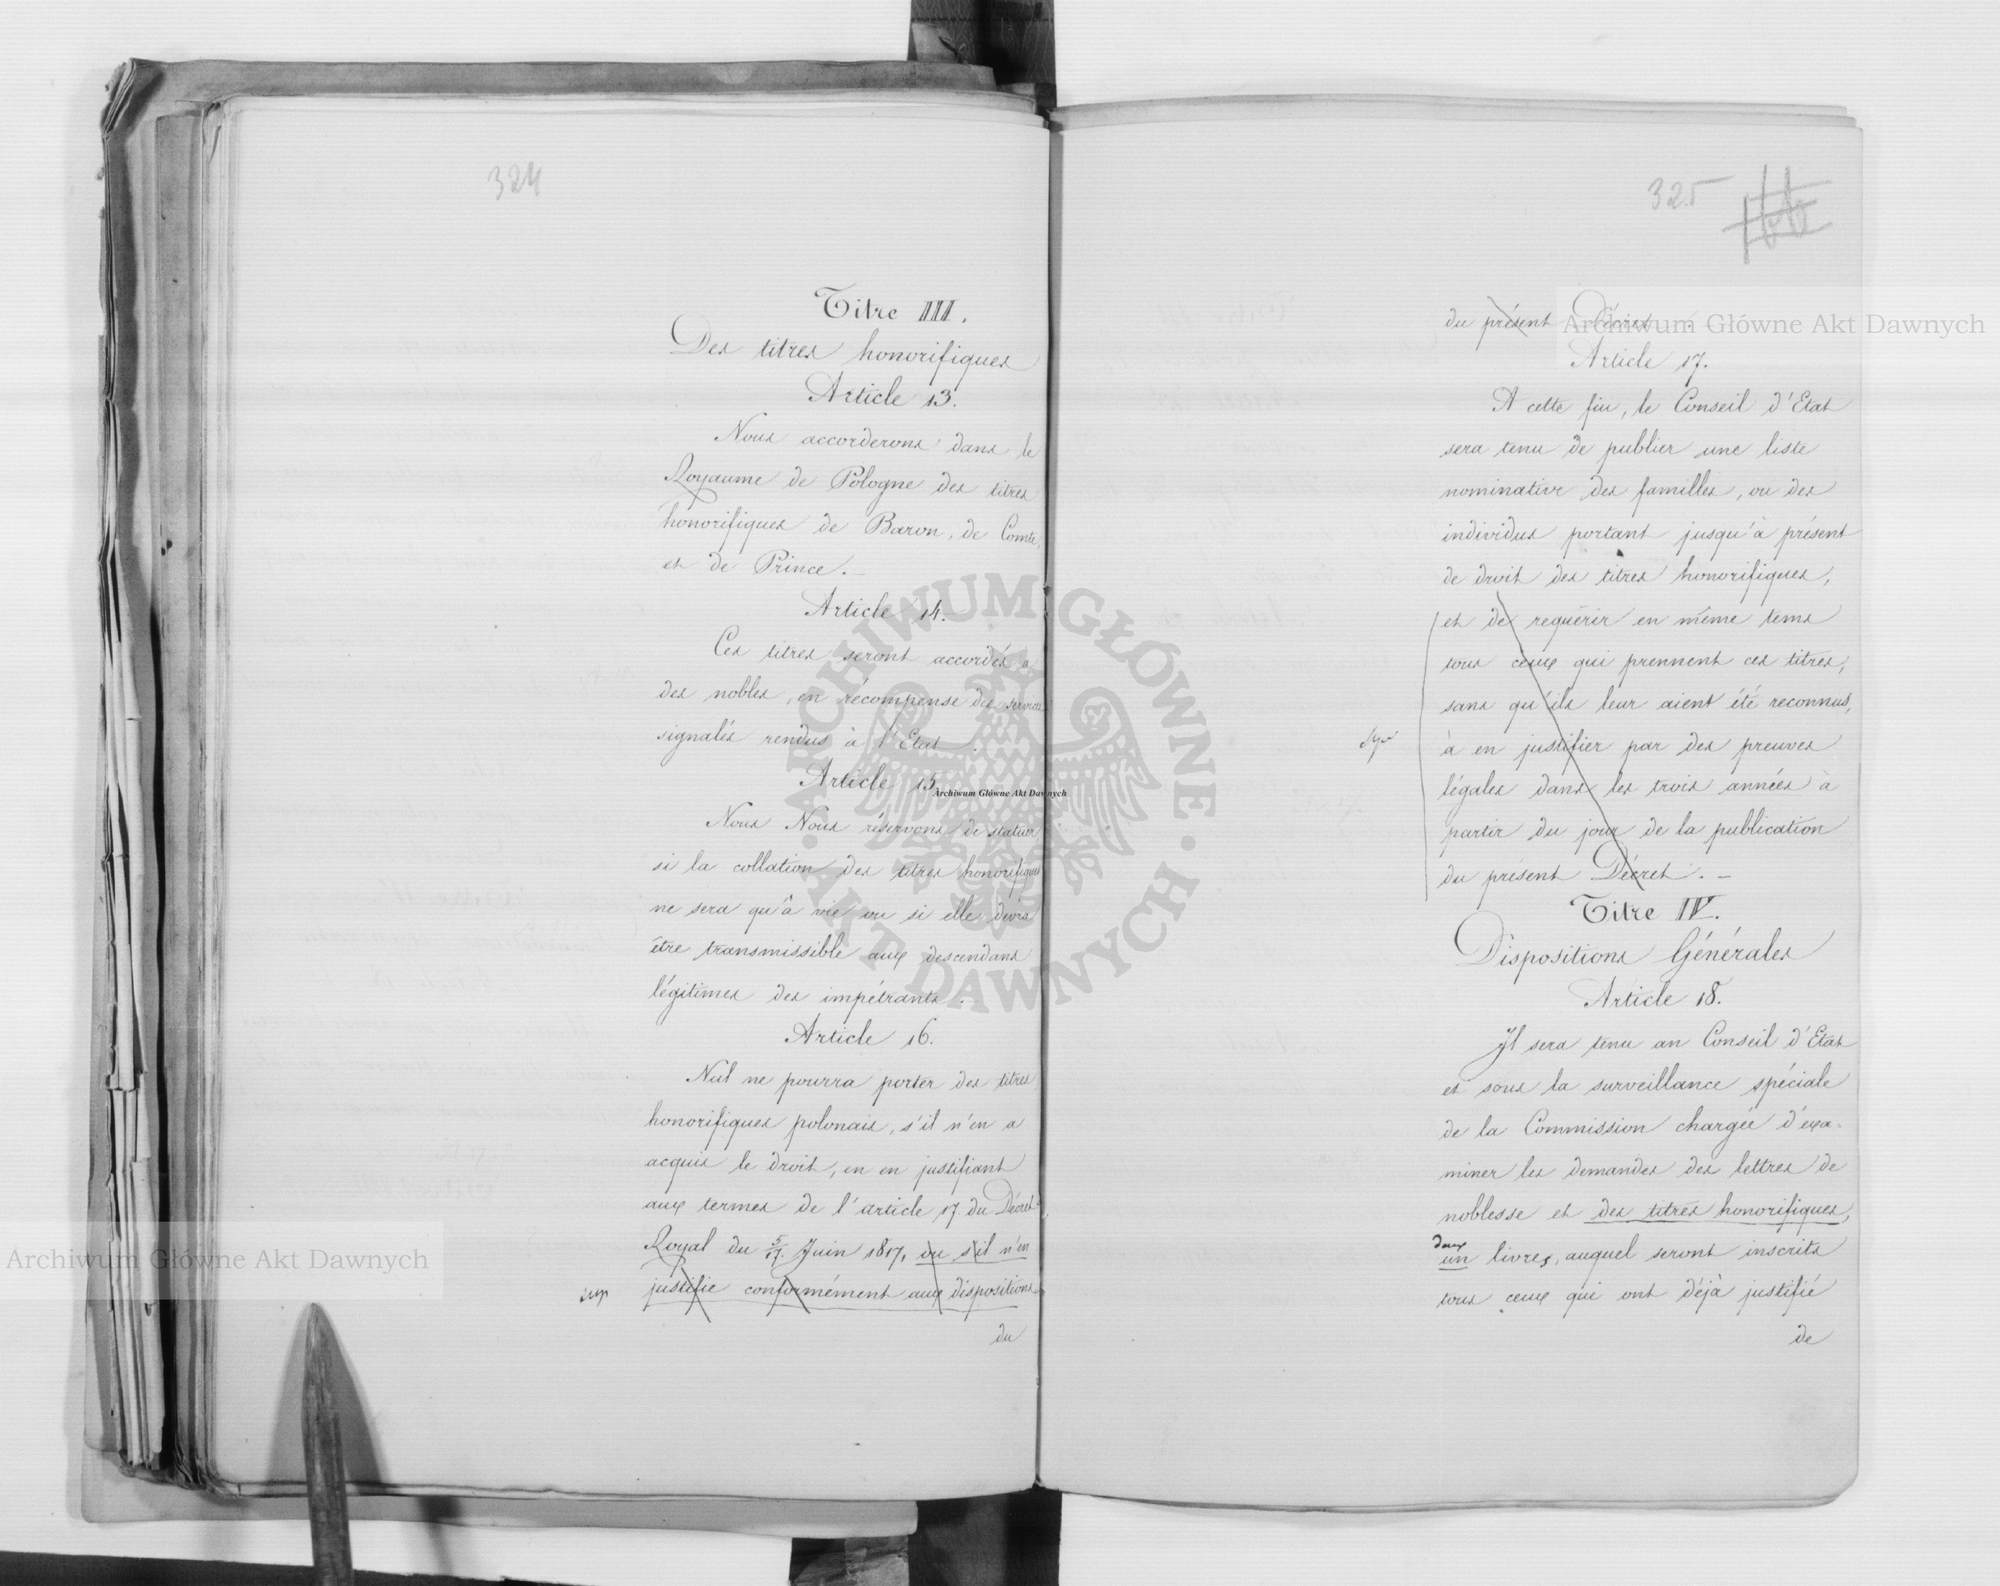 324
Titre III.
Des titres honorifiques
Article 13.
Nous accorderons dans le
Royaume de Pologne des titres
honorifiques de Baron, de Comte,
et de Prince. —
Article 14.
Ces titres seront accordés à
des nobles, en récompense des services
signalés rendus à l'Etat.
Article 15.
Nous Nous réservons de statuer
si la collation des titres honorifiques
ne sera qu'à vie ou si elle devra
être transmissible aux descendans
légitimes des impétrants.
Article 16.
Nul ne pourra porter des titres
honorifiques polonais, s'il n'en a
acquis le droit, en en justifiant
aux termes de l'article 17. du Décret
Royal du 5/17. Juin 1817, ou s'il n'en
justifie conformément aux dispositions
du
325
du présent Décret.
Article 17.
A cette fin, le Conseil d'Etat
sera tenu de publier une liste
nominative des familles, ou des
individus portant jusqu'à présent
de droit des titres honorifiques,
et de requérir en même tems
tous ceux qui prennent ces titres,
sans qu'ils leur aient été reconnus,
à en justifier par des preuves
légales dans les trois années à
partir du jour de la publication
du présent Décret. —
Titre IV.
Dispositions Générales
Article 18.
Il sera tenu au Conseil d'Etat
et sous la surveillance spéciale
de la Commission chargée d'exa-
miner les demandes des lettres de
noblesse et des titres honorifiques,
deux
un livres, auquel seront inscrits
tous ceux qui ont déjà justifié
de
Archiwum Główne Akt Dawnych
Archiwum Główne Akt Dawnych
Archiwum Główne Akt Dawnych
ARCHIWUM GŁÓWNE · AKT DAWNYCH ·